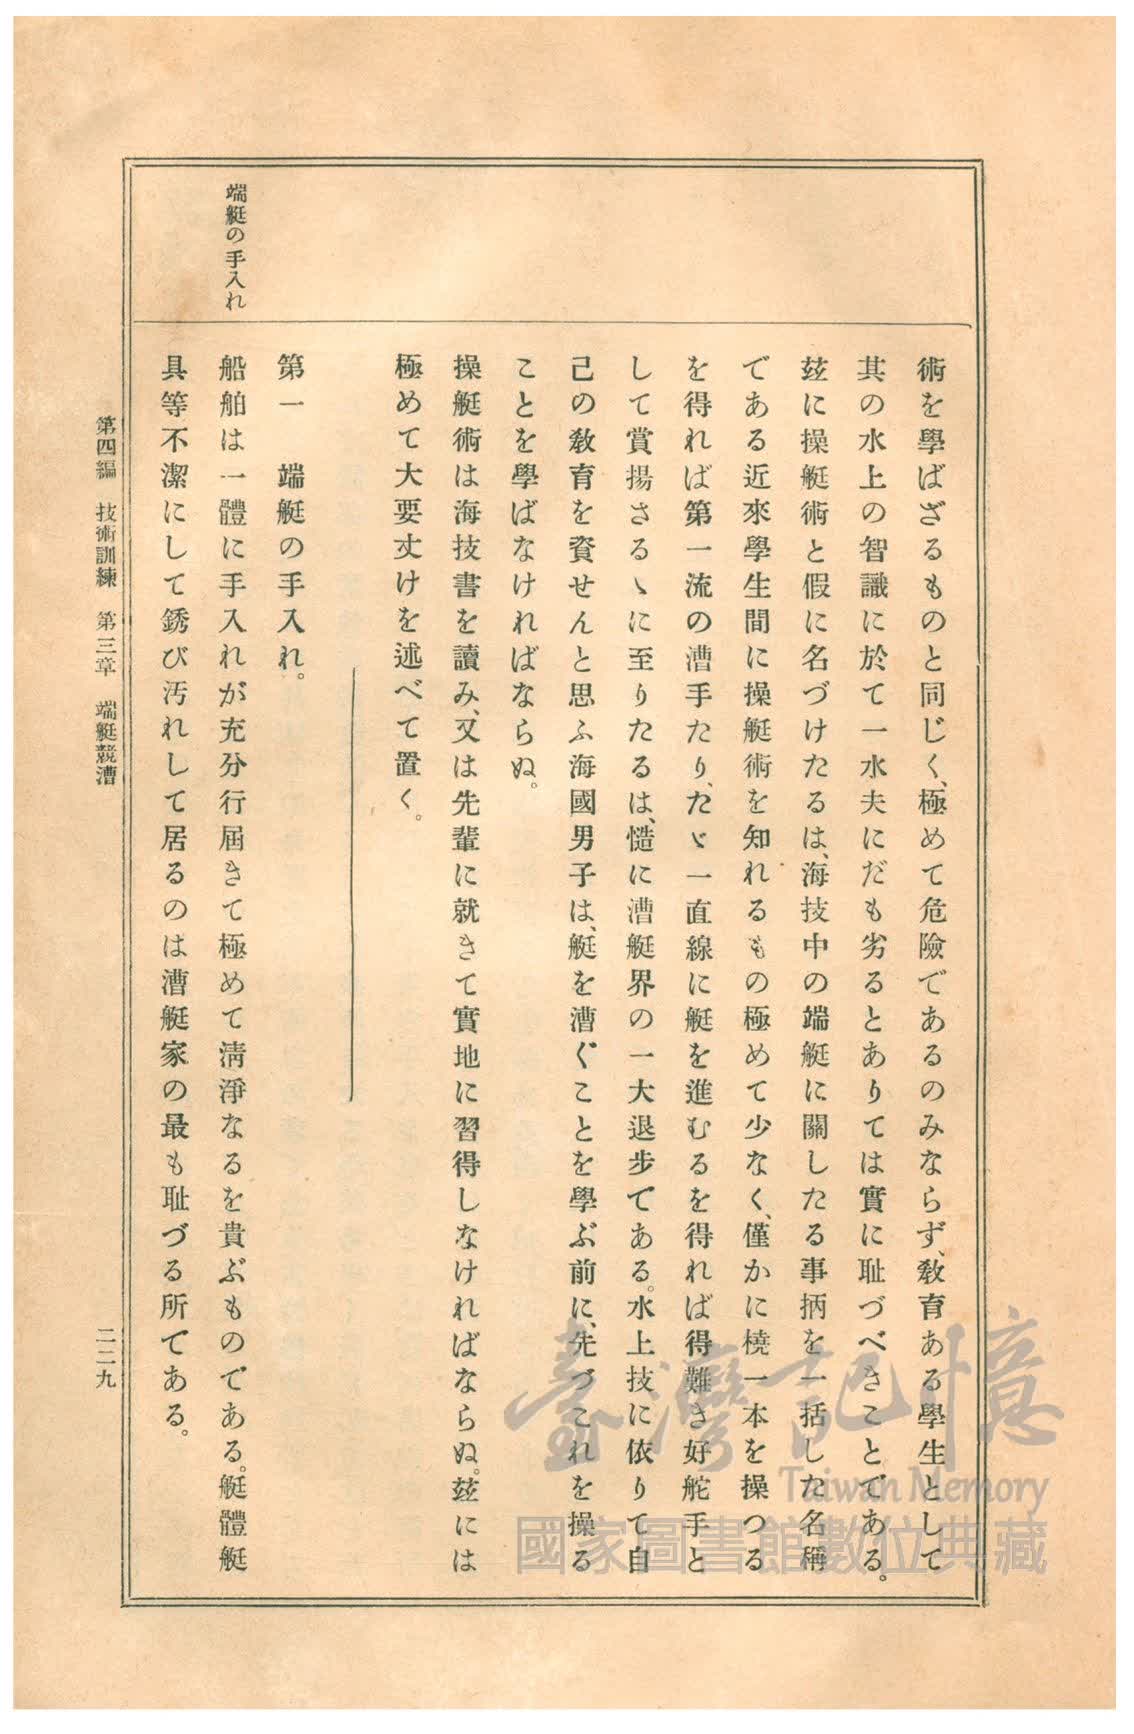 術を學ばざるものと同じく、極めて危險であるのみならず、敎育ある學生として
其の水上の智識に於て一水夫にだも劣るとありては實に耻づべきことである。
玆に操艇術と假に名づけたるは、海技中の端艇に關したる事柄を一括した名稱
である近來學生間に操艇術を知れるもの極めて少なく、僅かに橈一本を操つる
を得れば第一流の漕手たり、たゞ一直線に艇を進むるを得れば得難き好舵手と
して賞揚さるゝに至りたるは、慥に漕艇界の一大退步である。水上技に依りて自
己の敎育を資せんと思ふ海國男子は、艇を漕ぐことを學ぶ前に、先づこれを操る
ことを學ばなければならぬ。
操艇術は海技書を讀み、又は先輩に就きて實地に習得しなければならぬ。玆には
極めて大要丈けを述べて置く。
第一　端艇の手入れ。
端艇の手入れ
船舶は一體に手入れが充分行屆きて極めて淸淨なるを貴ぶものである。艇體艇
具等不潔にして銹び汚れして居るのは漕艇家の最も耻づる所である。
第四編　技術訓練　第三章　端艇競漕
二二九
臺灣記憶
Taiwan Memory
國家圖書館數位典藏